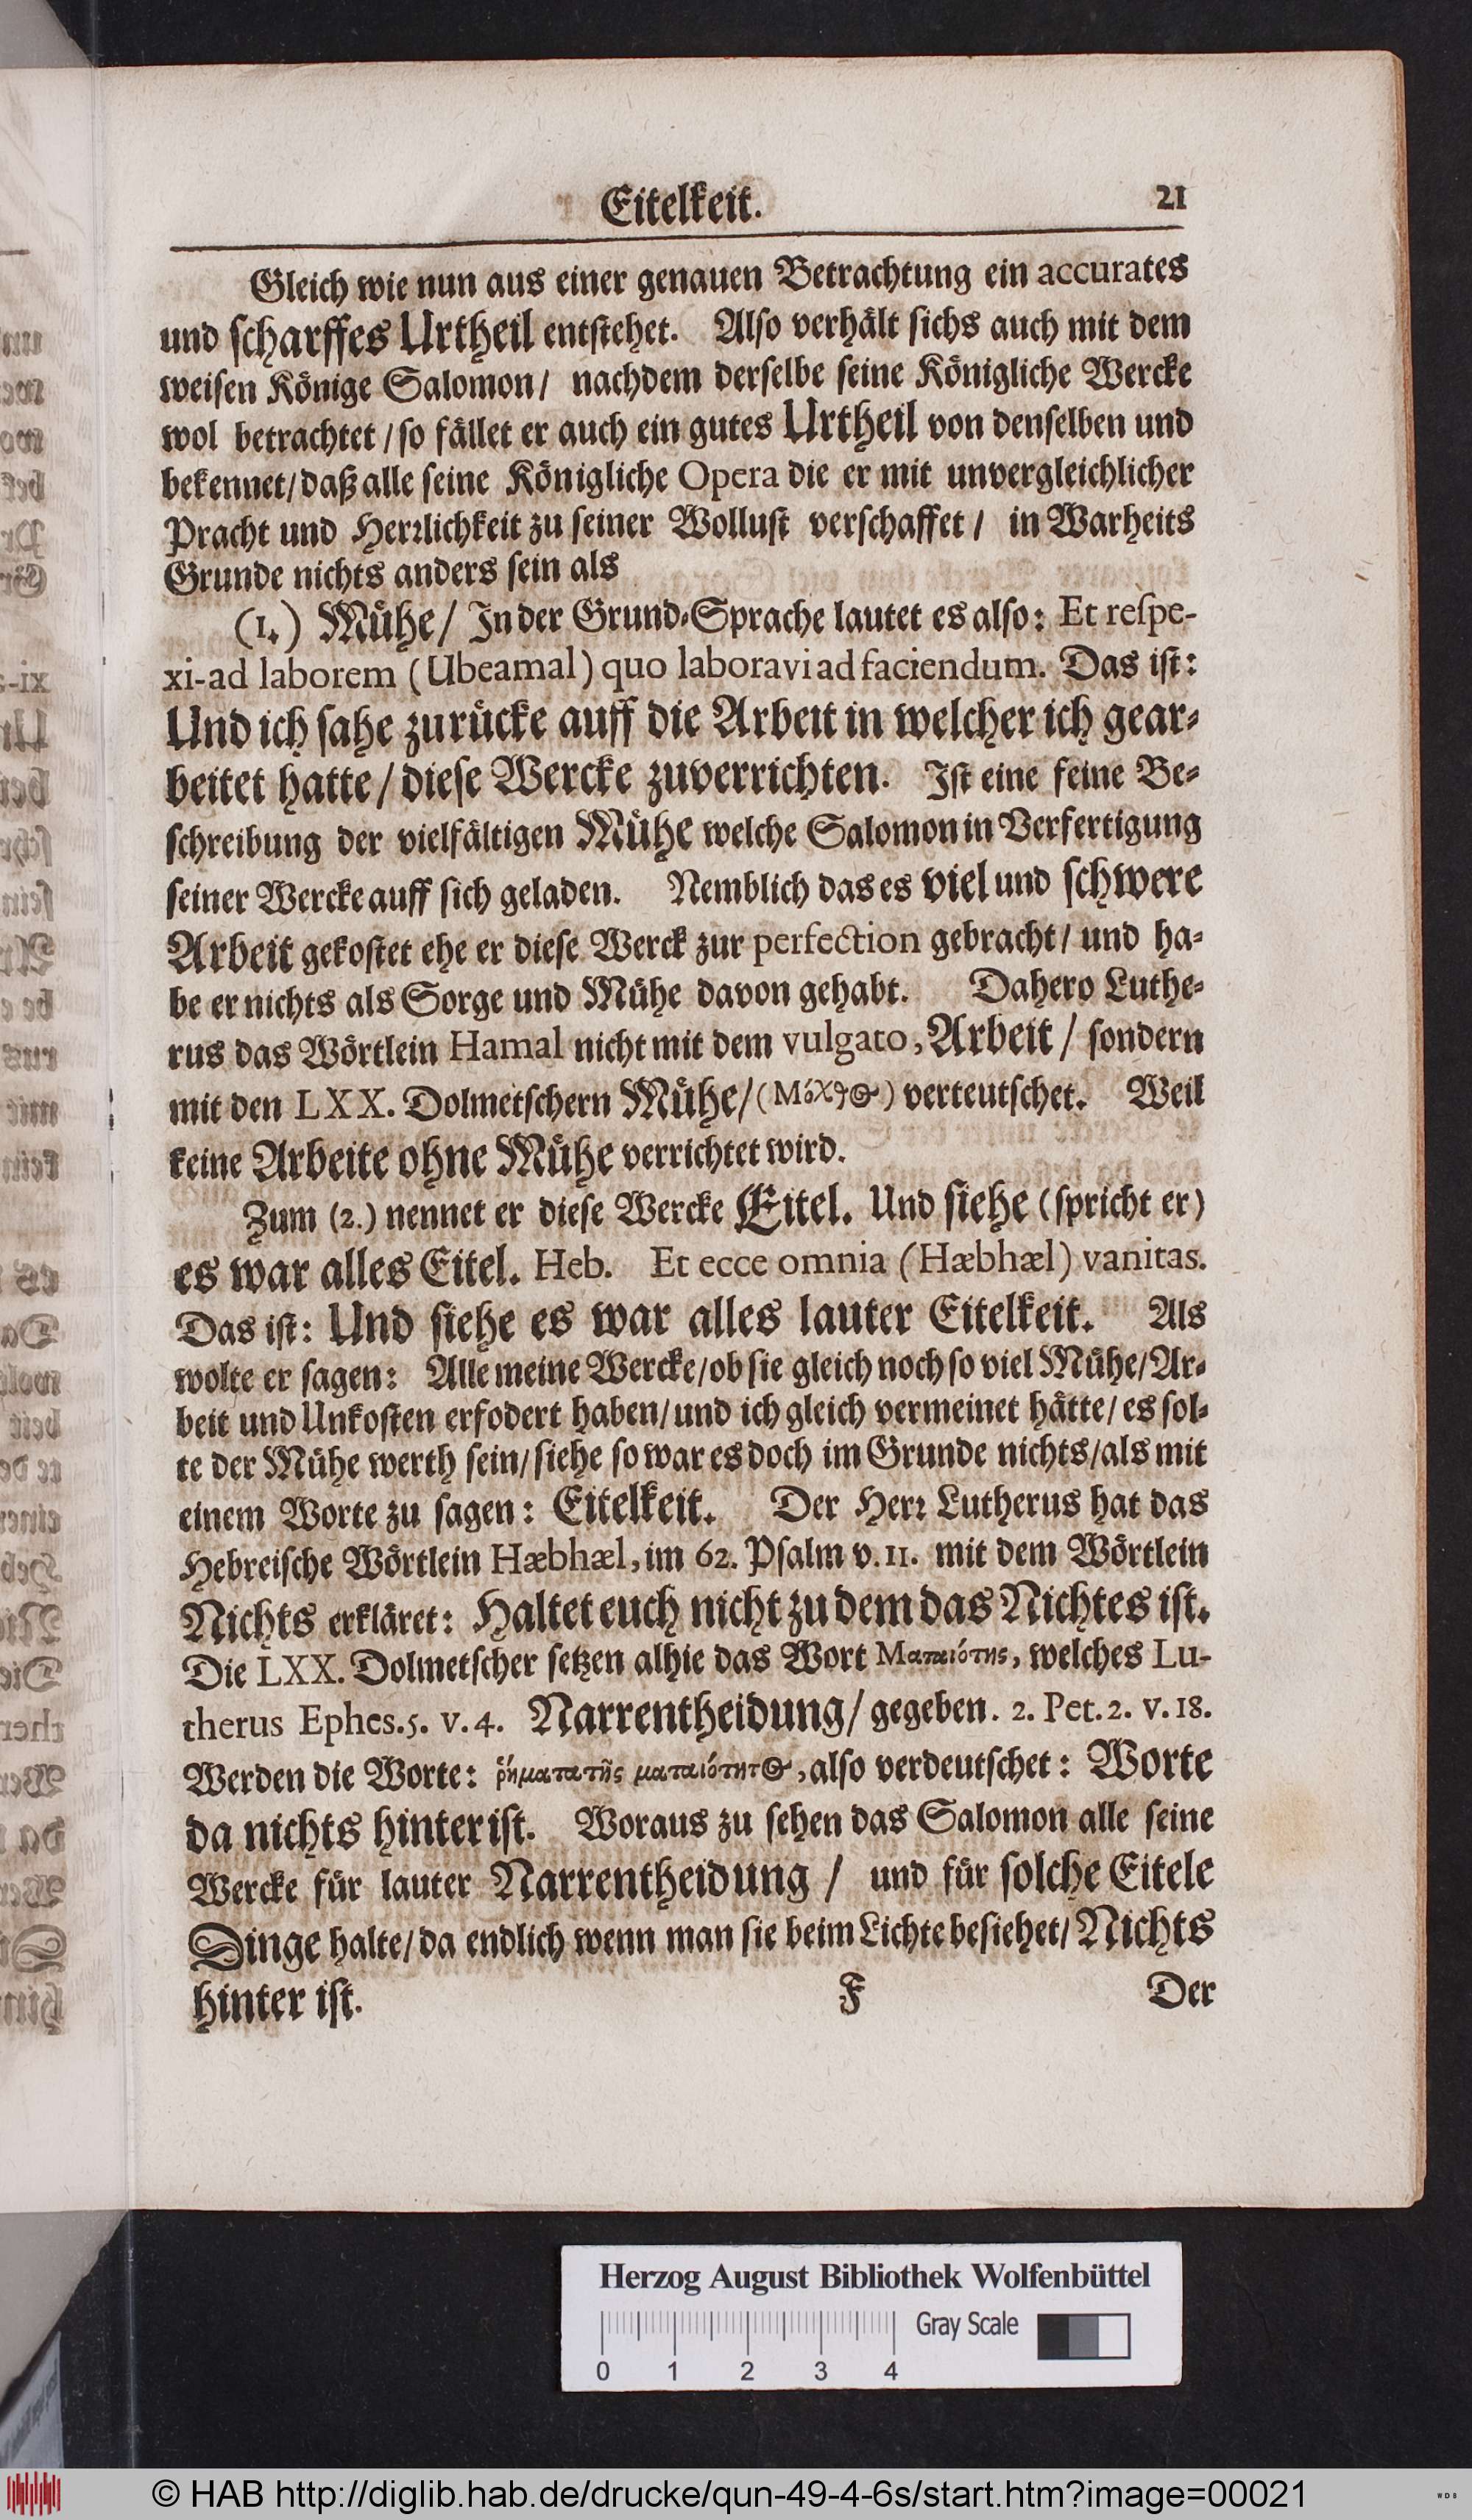 Eitelkeit. 21
Gleich wie nun aus einer genauen Betrachtung ein accurates
und ſcharffes Urtheil entſtehet. Alſo verhålt ſichs auch mit dem
weiſen Kônige Salomon/ nachdem derſelbe ſeine Kônigliche Wercke
wol betrachtet/ſo fållet er auch ein gutes Urtheil von denſelben und
bekennet/daß alle ſeine Kônigliche Opera die er mit unvergleichlicher
Pracht und Herꝛlichkeit zu ſeiner Wolluſt verſchaffet/ in Warheits
Grunde nichts anders ſein als
(1.) Mühe/ In der Grund-Sprache lautet es alſo: Et reſpe-
xi-ad laborem (Ubeamal) quo laboravi ad faciendum. Das iſt:
Und ich ſahe zurücke auff die Arbeit in welcher ich gear-
beitet hatte/dieſe Wercke zuverrichten. Iſt eine feine Be-
ſchreibung der vielfåltigen Mühe welche Salomon in Verfertigung
ſeiner Wercke auff ſich geladen. Nemblich das es viel und ſchwere
Arbeit gekoſtet ehe er dieſe Werck zur perfection gebracht/ und ha-
be er nichts als Sorge und Mühe davon gehabt. Dahero Luthe-
rus das Wôrtlein Hamal nicht mit dem vulgato, Arbeit/ ſondern
mit den LXX. Dolmetſchern Mühe/(Μόχθ⊙) verteutſchet. Weil
keine Arbeite ohne Mühe verrichtet wird.
Zum (2.) nennet er dieſe Wercke Eitel. Und ſiehe (ſpricht er)
es war alles Eitel. Heb. Et ecce omnia (Hæbhæl) vanitas.
Das iſt: Und ſiehe es war alles lauter Eitelkeit. Als
wolte er ſagen: Alle meine Wercke/ob ſie gleich noch ſo viel Mühe/Ar-
beit und Unkoſten erfodert haben/und ich gleich vermeinet håtte/es ſol-
te der Mühe werth ſein/ſiehe ſo war es doch im Grunde nichts/als mit
einem Worte zu ſagen: Eitelkeit. Der Herꝛ Lutherus hat das
Hebreiſche Wôrtlein Hæbhæl, im 62. Pſalm v. 11. mit dem Wôrtlein
Nichts erklåret: Haltet euch nicht zu dem das Nichtes iſt.
Die LXX. Dolmetſcher ſetzen alhie das Wort Ματαιότης, welches Lu-
therus Ephes. 5. v. 4. Narrentheidung/ gegeben. 2. Pet. 2. v. 18.
Werden die Worte: ῥήματα τῆς ματαιότητ⊙, alſo verdeutſchet: Worte
da nichts hinter iſt. Woraus zu ſehen das Salomon alle ſeine
Wercke für lauter Narrentheidung/ und für ſolche Eitele
Dinge halte/da endlich wenn man ſie beim Lichte beſiehet/Nichts
hinter iſt. F Der
Herzog August Bibliothek Wolfenbüttel
Gray Scale
0 1 2 3 4
© HAB http://diglib.hab.de/drucke/qun-49-4-6s/start.htm?image=00021